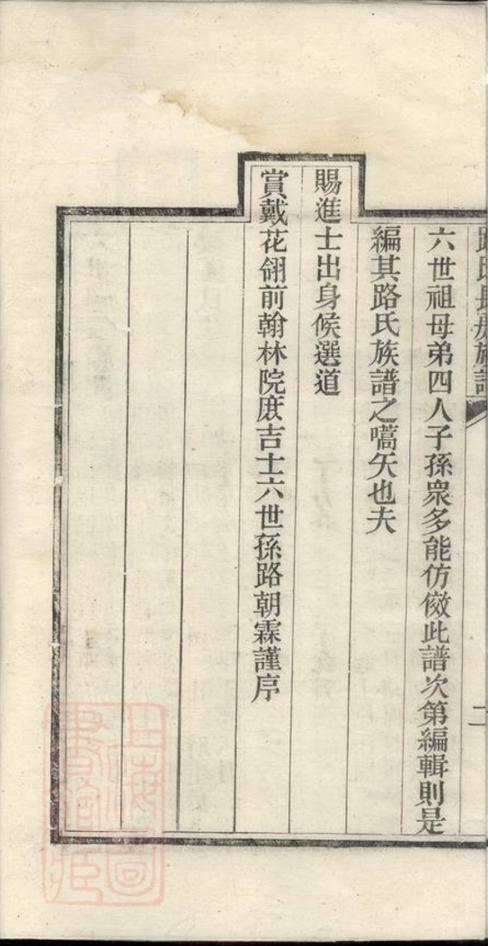 路氏長房族譜
二
六世祖母弟四人子孫眾多能仿傚此譜次第編輯則是
編其路氏族譜之嚆矢也夫
賜進士出身候選道
賞戴花翎前翰林院庶吉士六世孫路朝霖謹序
上海圖書館藏